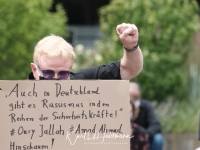 "Auch in Deutschland
gibt es Rassismus in den
Reihen der Sicherheitskräfte!"
#Oury Jalloh #Amad Ahmad
Hinschauen!